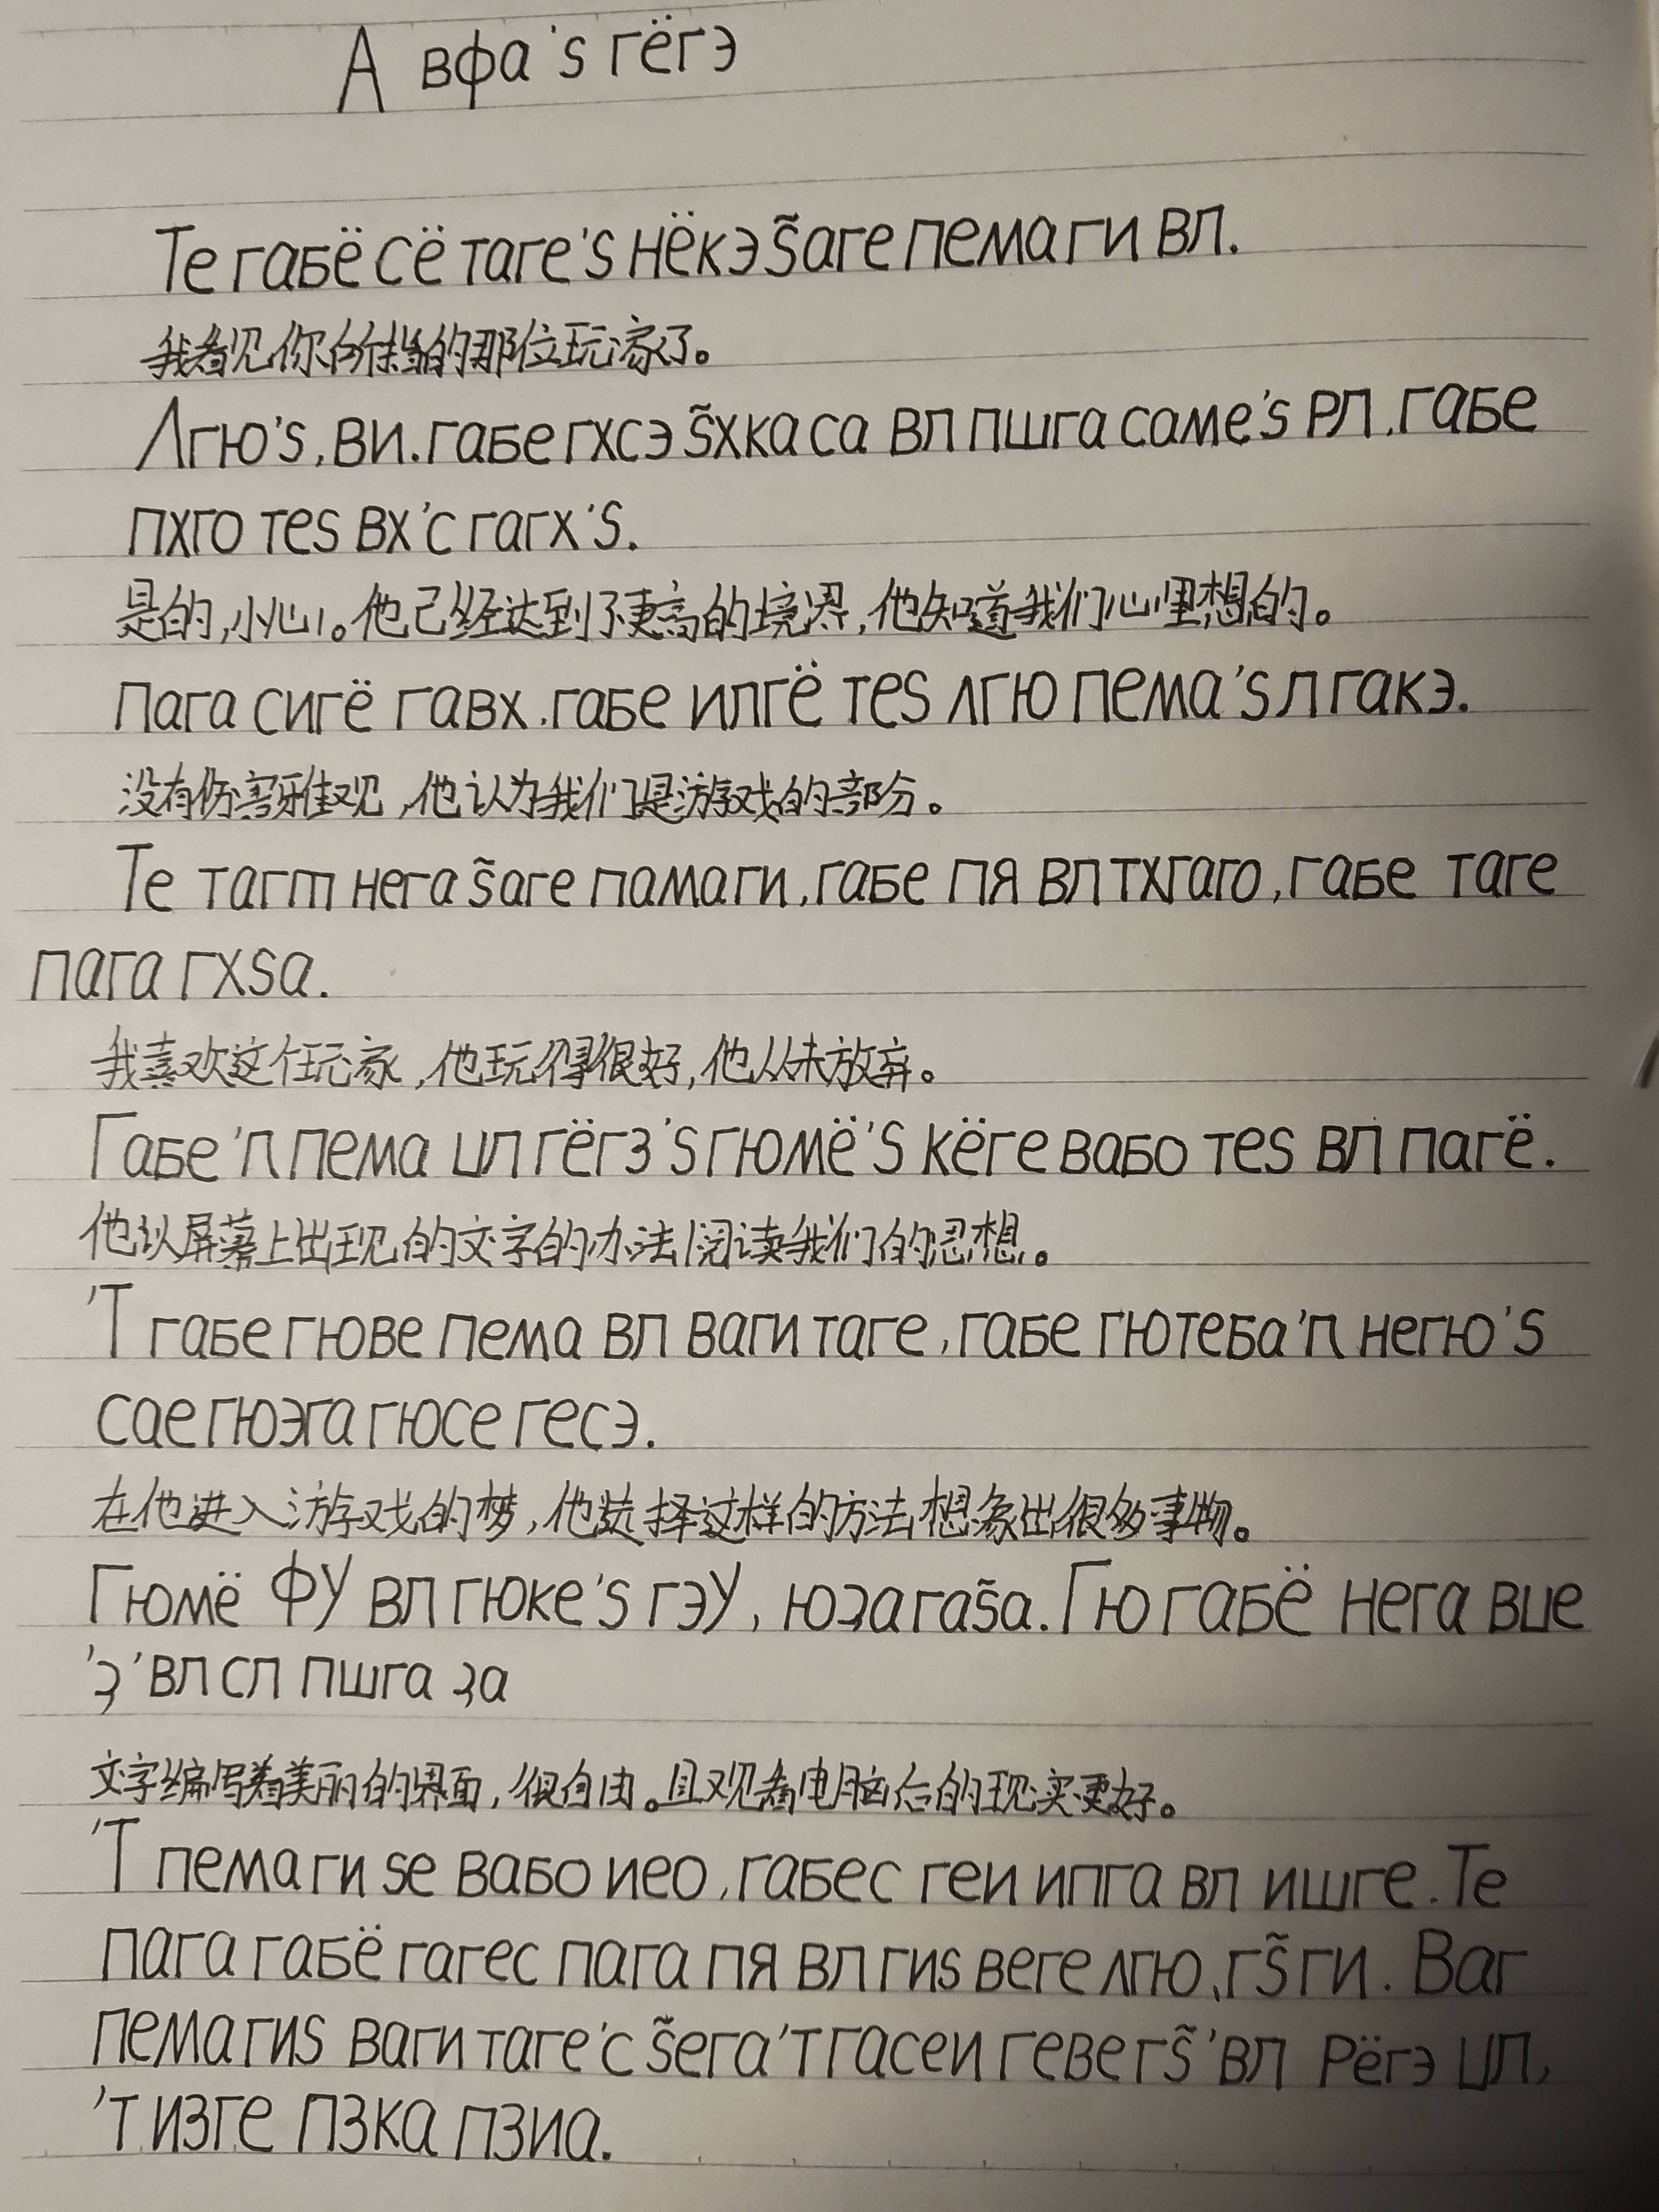 А вфа's гёгэ
Те габё сё таге's нёкэ s̃аге пема ги вл.
我看见你所指的那位玩家了。
Лгю's, ви. габе гхсэ s̃хка са вл пшга саме's рл. габе
пхго теs вх'с гагх's.
是的,小心。他已经达到了更高的境界,他知道我们心里想的。
Пага сигё гавх. габе илгё теs лгю пема's л гакэ.
没有伤害雅观,他认为我们是游戏的部分。
Те тагт нега s̃аге памаги, габе пя вл тхгаго, габе таге
пага гхsа.
我喜欢这个玩家,他玩得很好,他从未放弃。
Габе'п пема цл гёгз's гюмё's кёге вабо теs вл пагё.
他以屏幕上出现的文字的办法阅读我们的思想。
'Т габе гюве пема вл ваги таге, габе гютеба'п негю's
сае гюэга гюсе гесэ.
在他进入游戏的梦,他选择这样的方法想象出很多事物。
Гюмё фу вл гюке's гэу, юзагаs̃а. Гю габё нега вце
'з'вл сл пшга за
文字编写着美丽的界面,很自由。且观看电脑后的现实更好。
'Т пемаги sе вабо иео, габес геи ипга вл ишге. Те
пага габё гагес пага пя вл гиs веге лгю, гs̃ ги. Ваг
пемагиs ваги таге'с s̃ега'т гасеи геве гs̃'вл Рёгэ цл,
'т изге пзка пзиа.